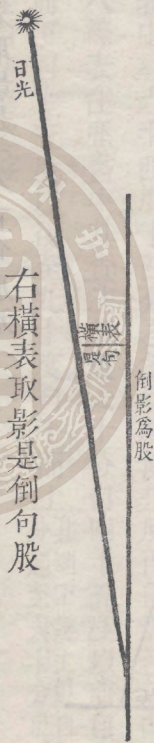 日光
橫表
是句
倒影爲股
右橫表取影是倒句股